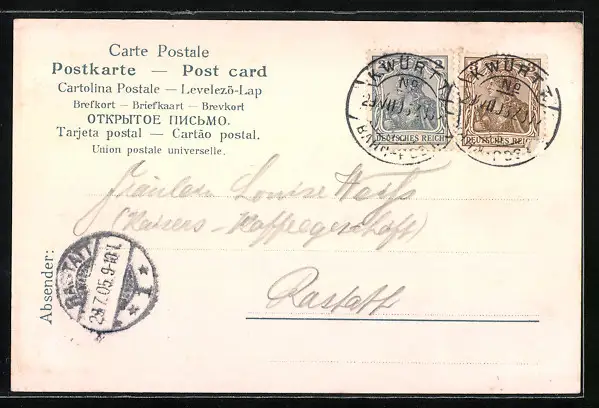 Carte Postale
Postkarte — Post card
Cartolina Postale — Levelező-Lap
Brefkort — Briefkaart — Brevkort
ОТКРЫТОЕ ПИСЬМО.
Tarjeta postal — Cartão postal.
Union postale universelle.
2 2
DEUTSCHES REICH
3
DEUTSCHES REI
KWÜRT
No
KWÜRTZ
No
Fräulein Louise Weiß
(Kaisers-Kaffeegeschäft)
Rastatt
Absender:
RASTATT
29.7.05.9-10V.
1